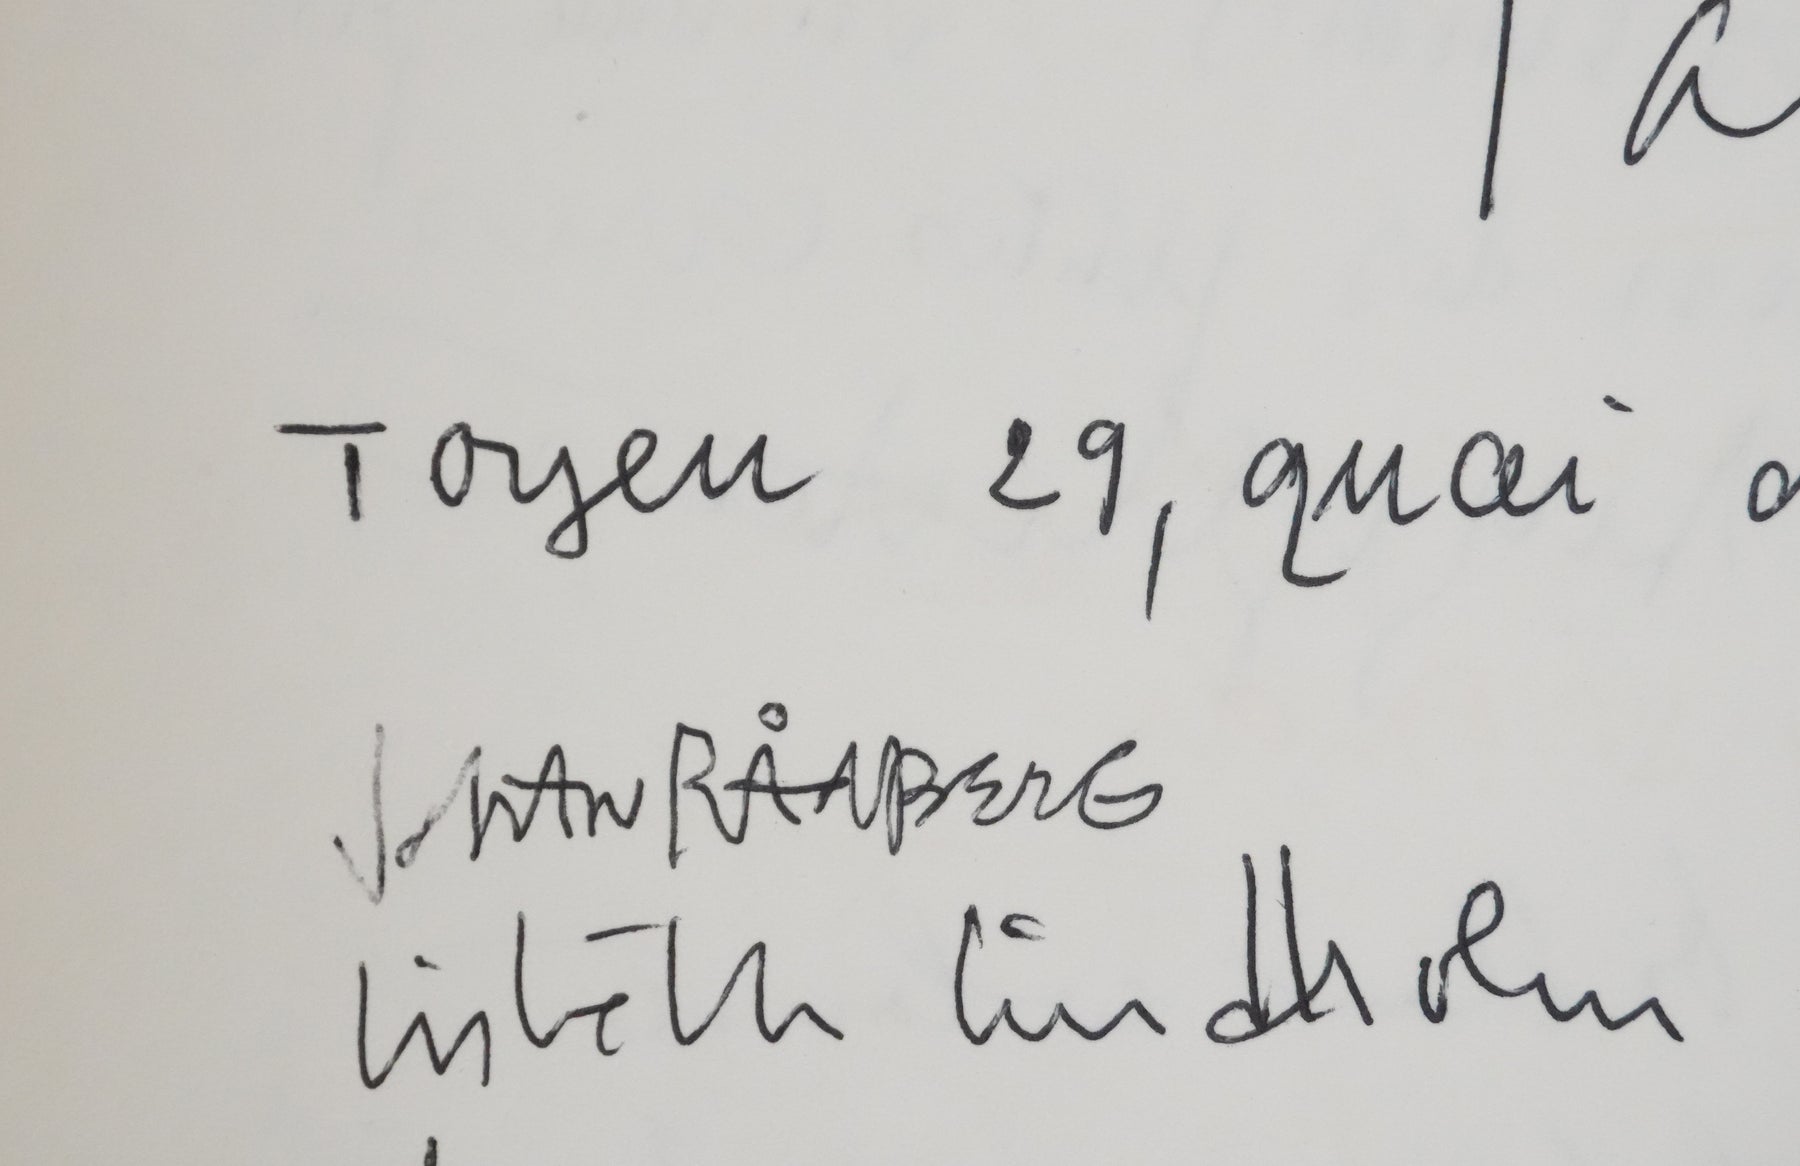 Toyen 29, quai
JOHAN RÅABERG
Lisbeth Lindholm